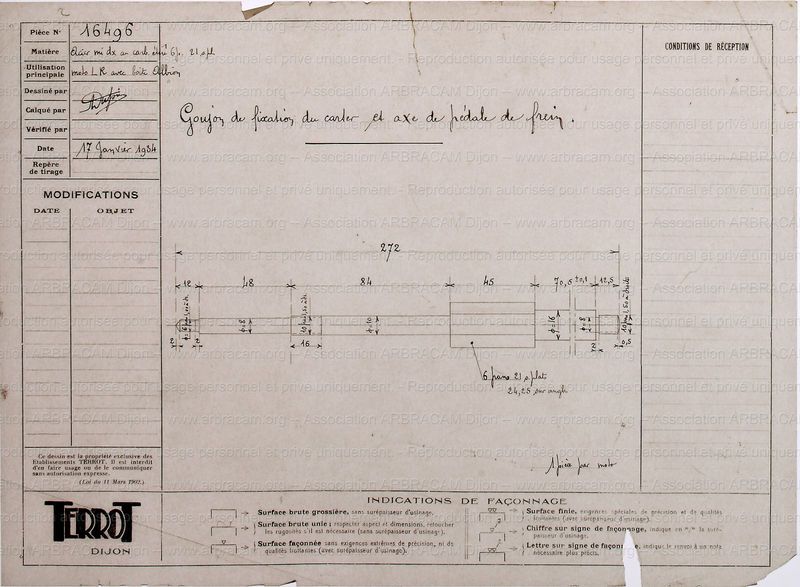 Pièce N° 16496
Matière Acier mi dx au carb. étiré 6 p. 21 s/pl
Utilisation principale moto L R avec boîte Albion
Dessiné par
Calqué par
Vérifié par
Date 17 Janvier 1934
Repère de tirage
MODIFICATIONS
DATE OBJET
Goujon de fixation du carter et axe de pédale de frein.
CONDITIONS DE RÉCEPTION
272
12 48 84 45 70,5 ±0,1 12,5
16
ϕ=10
ϕ=16
ϕ=8
2 2 16 2 0,5
6 pans 21 s/plat
24,25 sur angle
1 pièce par moto
Ce dessin est la propriété exclusive des
Etablissements TERROT. Il est interdit
d'en faire usage ou de le communiquer
sans autorisation expresse.
(Loi du 11 Mars 1902.)
TERROT
DIJON
INDICATIONS DE FAÇONNAGE
Surface brute grossière, sans surépaisseur d'usinage.
Surface brute unie; respecter aspect et dimensions, retoucher
les rugosités s'il est nécessaire (sans surépaisseur d'usinage).
Surface façonnée sans exigences extrêmes de précision, ni de
qualités frottantes (avec surépaisseur d'usinage).
Surface finie, exigences spéciales de précision et de qualités
frottantes (avec surépaisseur d'usinage).
Chiffre sur signe de façonnage, indique en m/m la surépaisseur
d'usinage.
Lettre sur signe de façonnage, indique le renvoi à un note
nécessaire plus précis.
www.arbracam.org – Association ARBRACAM Dijon – Reproduction autorisée pour usage personnel et privé uniquement.